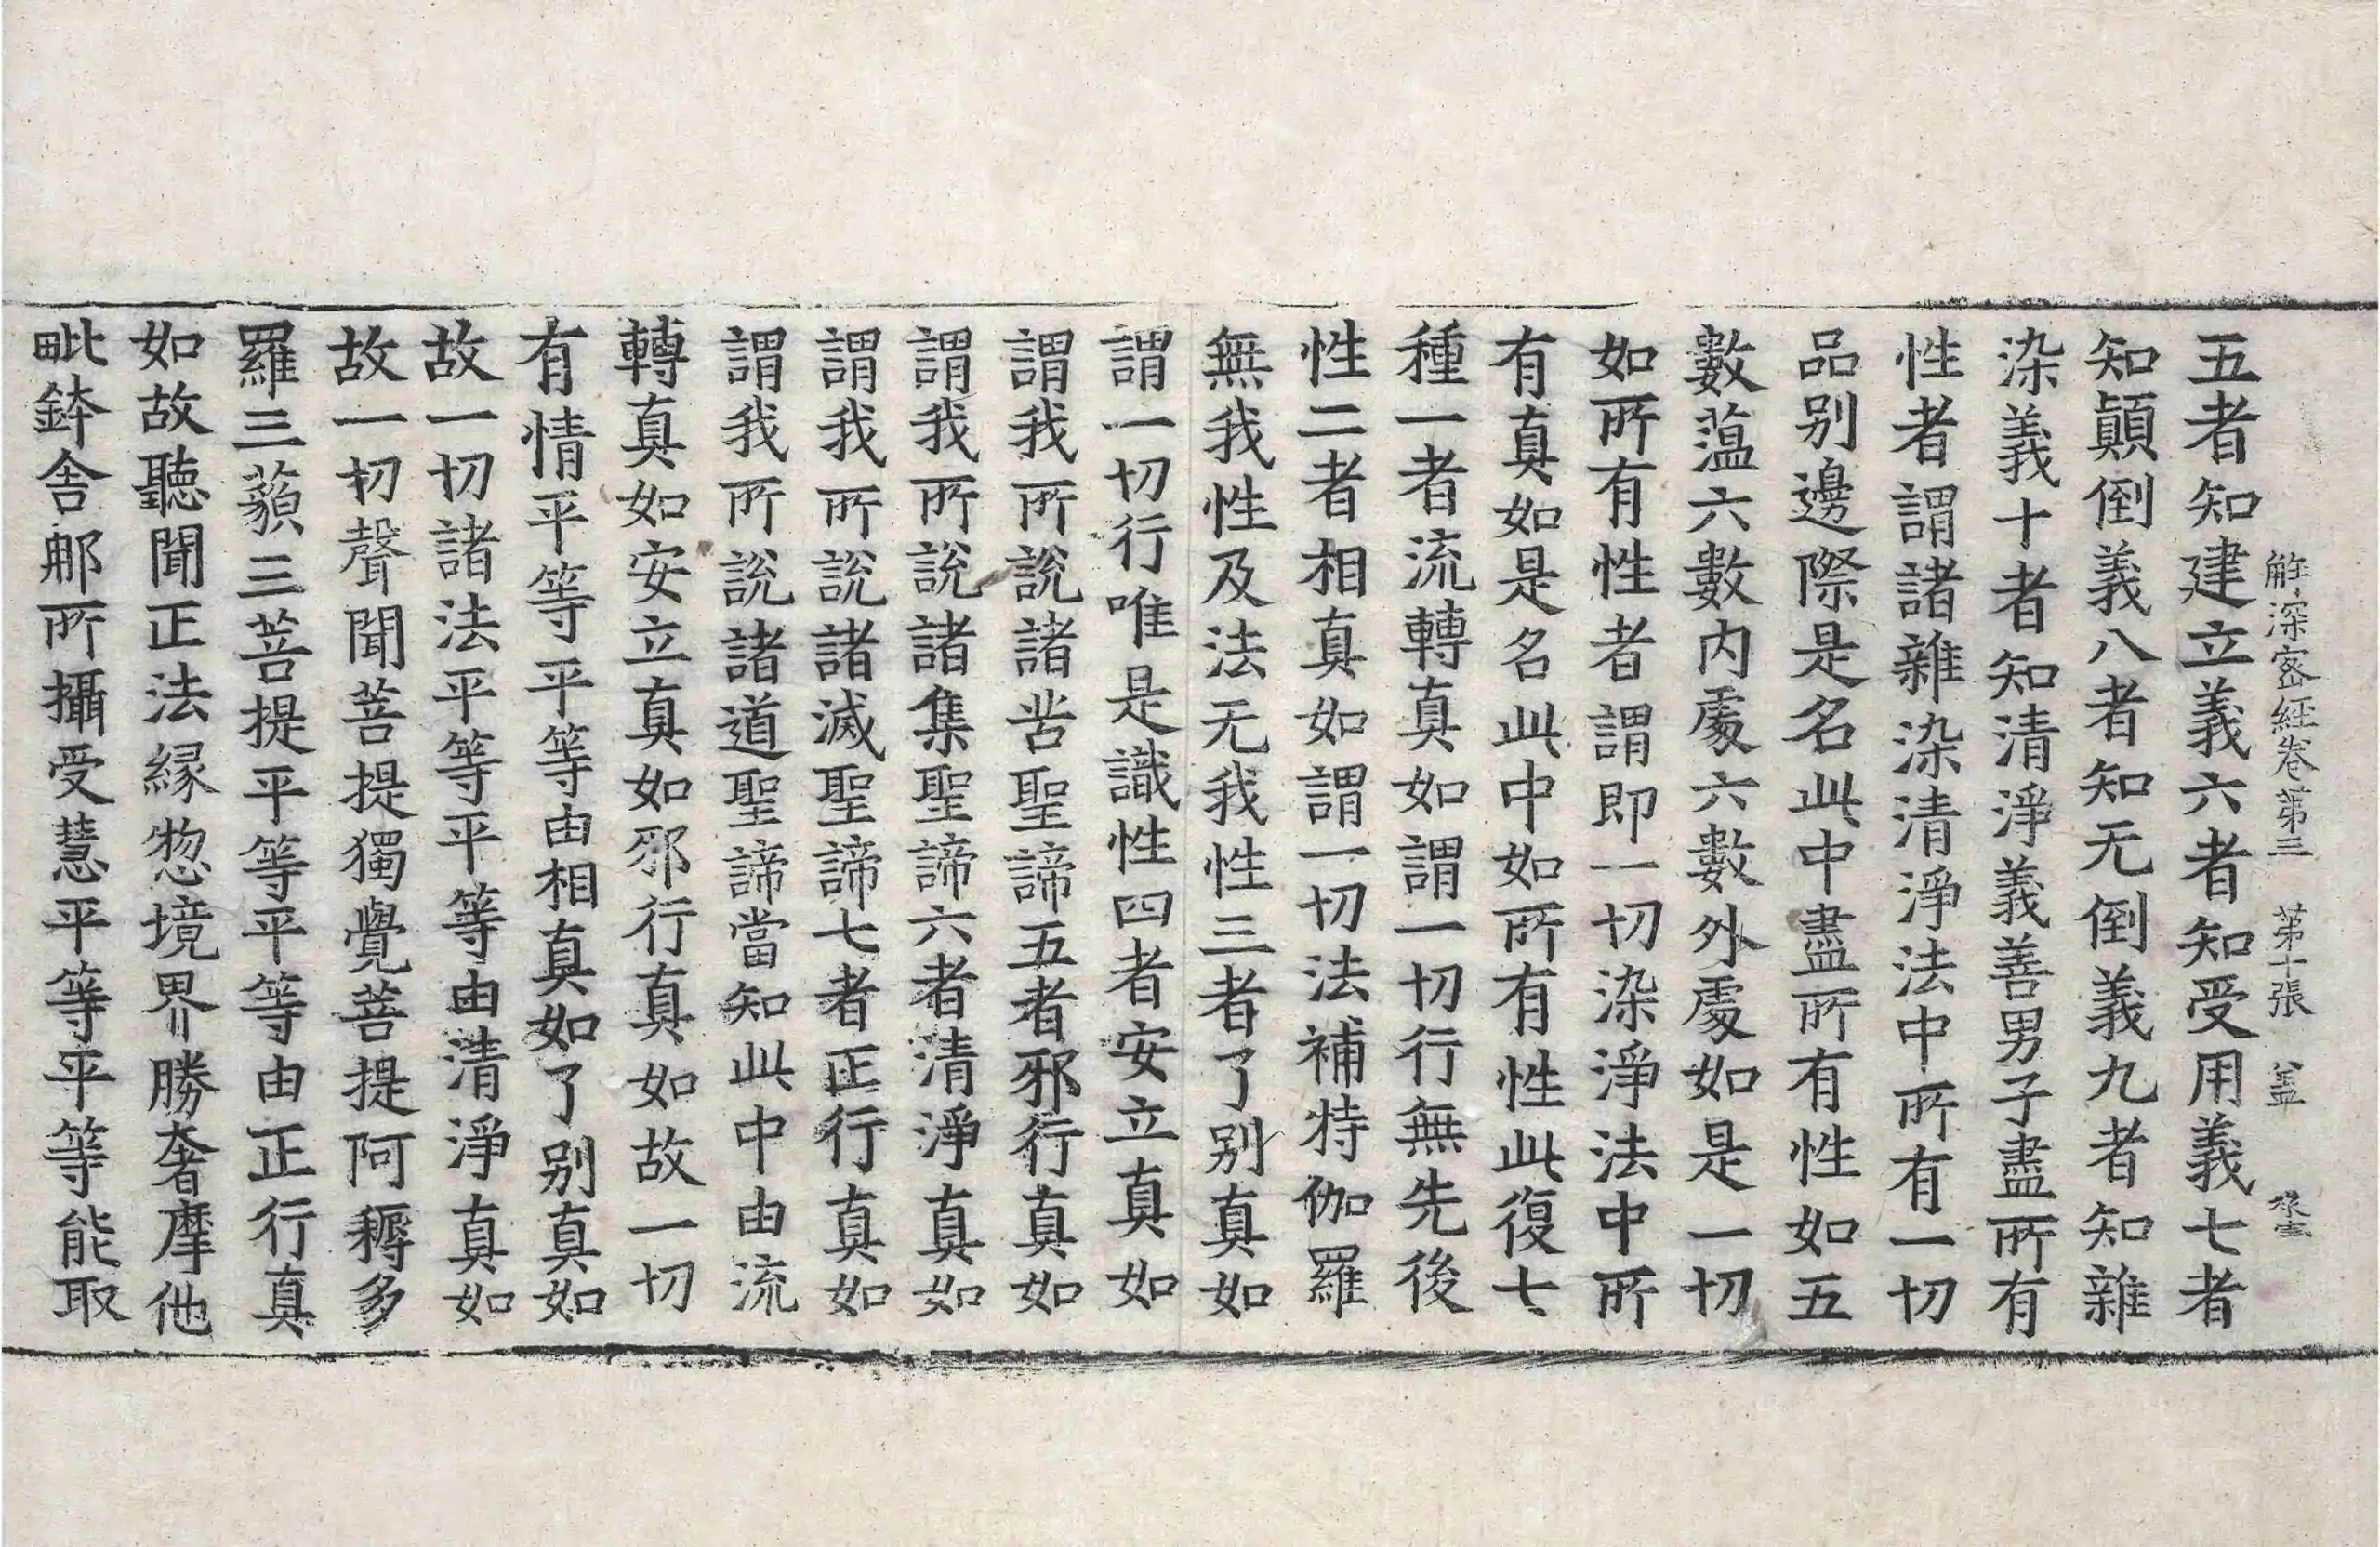 解深密經卷第三 第十張 盖
五者知建立義六者知受用義七者
知顛倒義八者知无倒義九者知雜
染義十者知清淨義善男子盡所有
性者謂諸雜染清淨法中所有一切
品別邊際是名此中盡所有性如五
數蕰六數內處六數外處如是一切
如所有性者謂即一切染淨法中所
有真如是名此中如所有性此復七
種一者流轉真如謂一切行無先後
性二者相真如謂一切法補特伽羅
無我性及法无我性三者了别真如
謂一切行唯是識性四者安立真如
謂我所說諸苦聖諦五者邪行真如
謂我所說諸集聖諦六者清淨真如
謂我所說諸滅聖諦七者正行真如
謂我所說諸道聖諦當知此中由流
轉真如安立真如邪行真如故一切
有情平等平等由相真如了别真如
故一切諸法平等平等由清淨真如
故一切聲聞菩提獨覺菩提阿耨多
羅三藐三菩提平等平等由正行真
如故聽聞正法緣惣境界勝奢摩他
毗鉢舍那所攝受慧平等平等能取